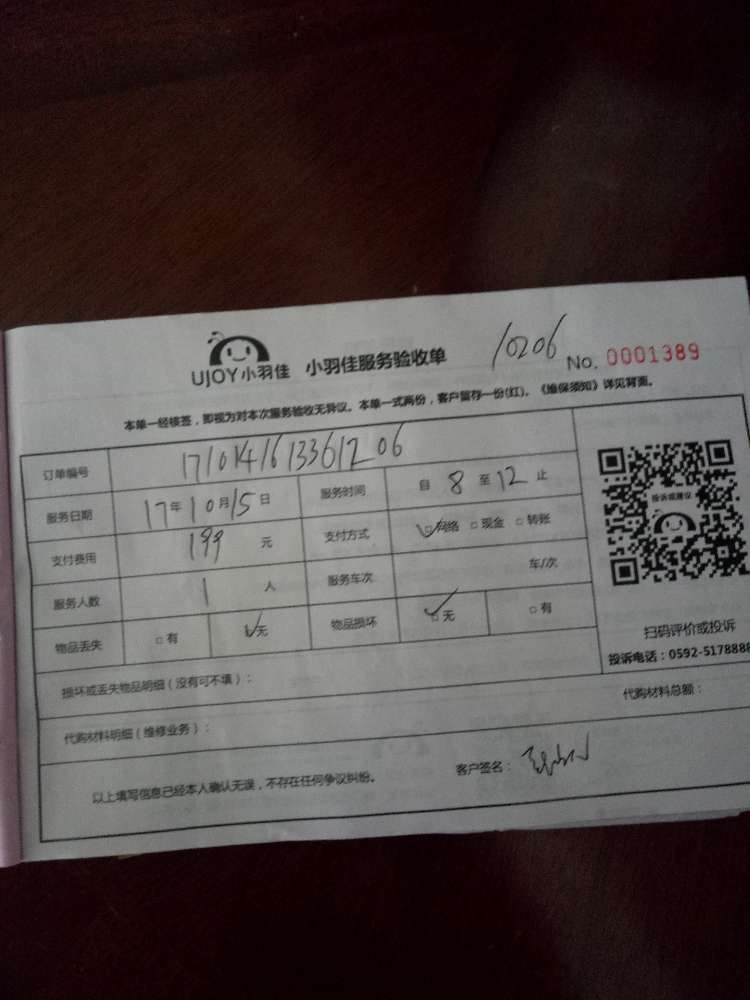 UJOY小羽佳 小羽佳服务验收单 10206 No. 0001389
本单一经核签，即视为对本次服务验收无异议。本单一式两份，客户留存一份(红)。《维保须知》详见背面。
订单编号 17101416133612 06
服务日期 17年10月15日 服务时间 自 8 至 12 止
支付费用 199 元 支付方式 ☑网络 □现金 □转账
服务人数 1 人 服务车次 车/次
物品丢失 □有 ☑无 物品损坏 ☑无 □有
投诉或建议
扫码评价或投诉
投诉电话：0592-5178888
损坏或丢失物品明细（没有可不填）：
代购材料明细（维修业务）： 代购材料总额：
以上填写信息已经本人确认无误，不存在任何争议纠纷。 客户签名：